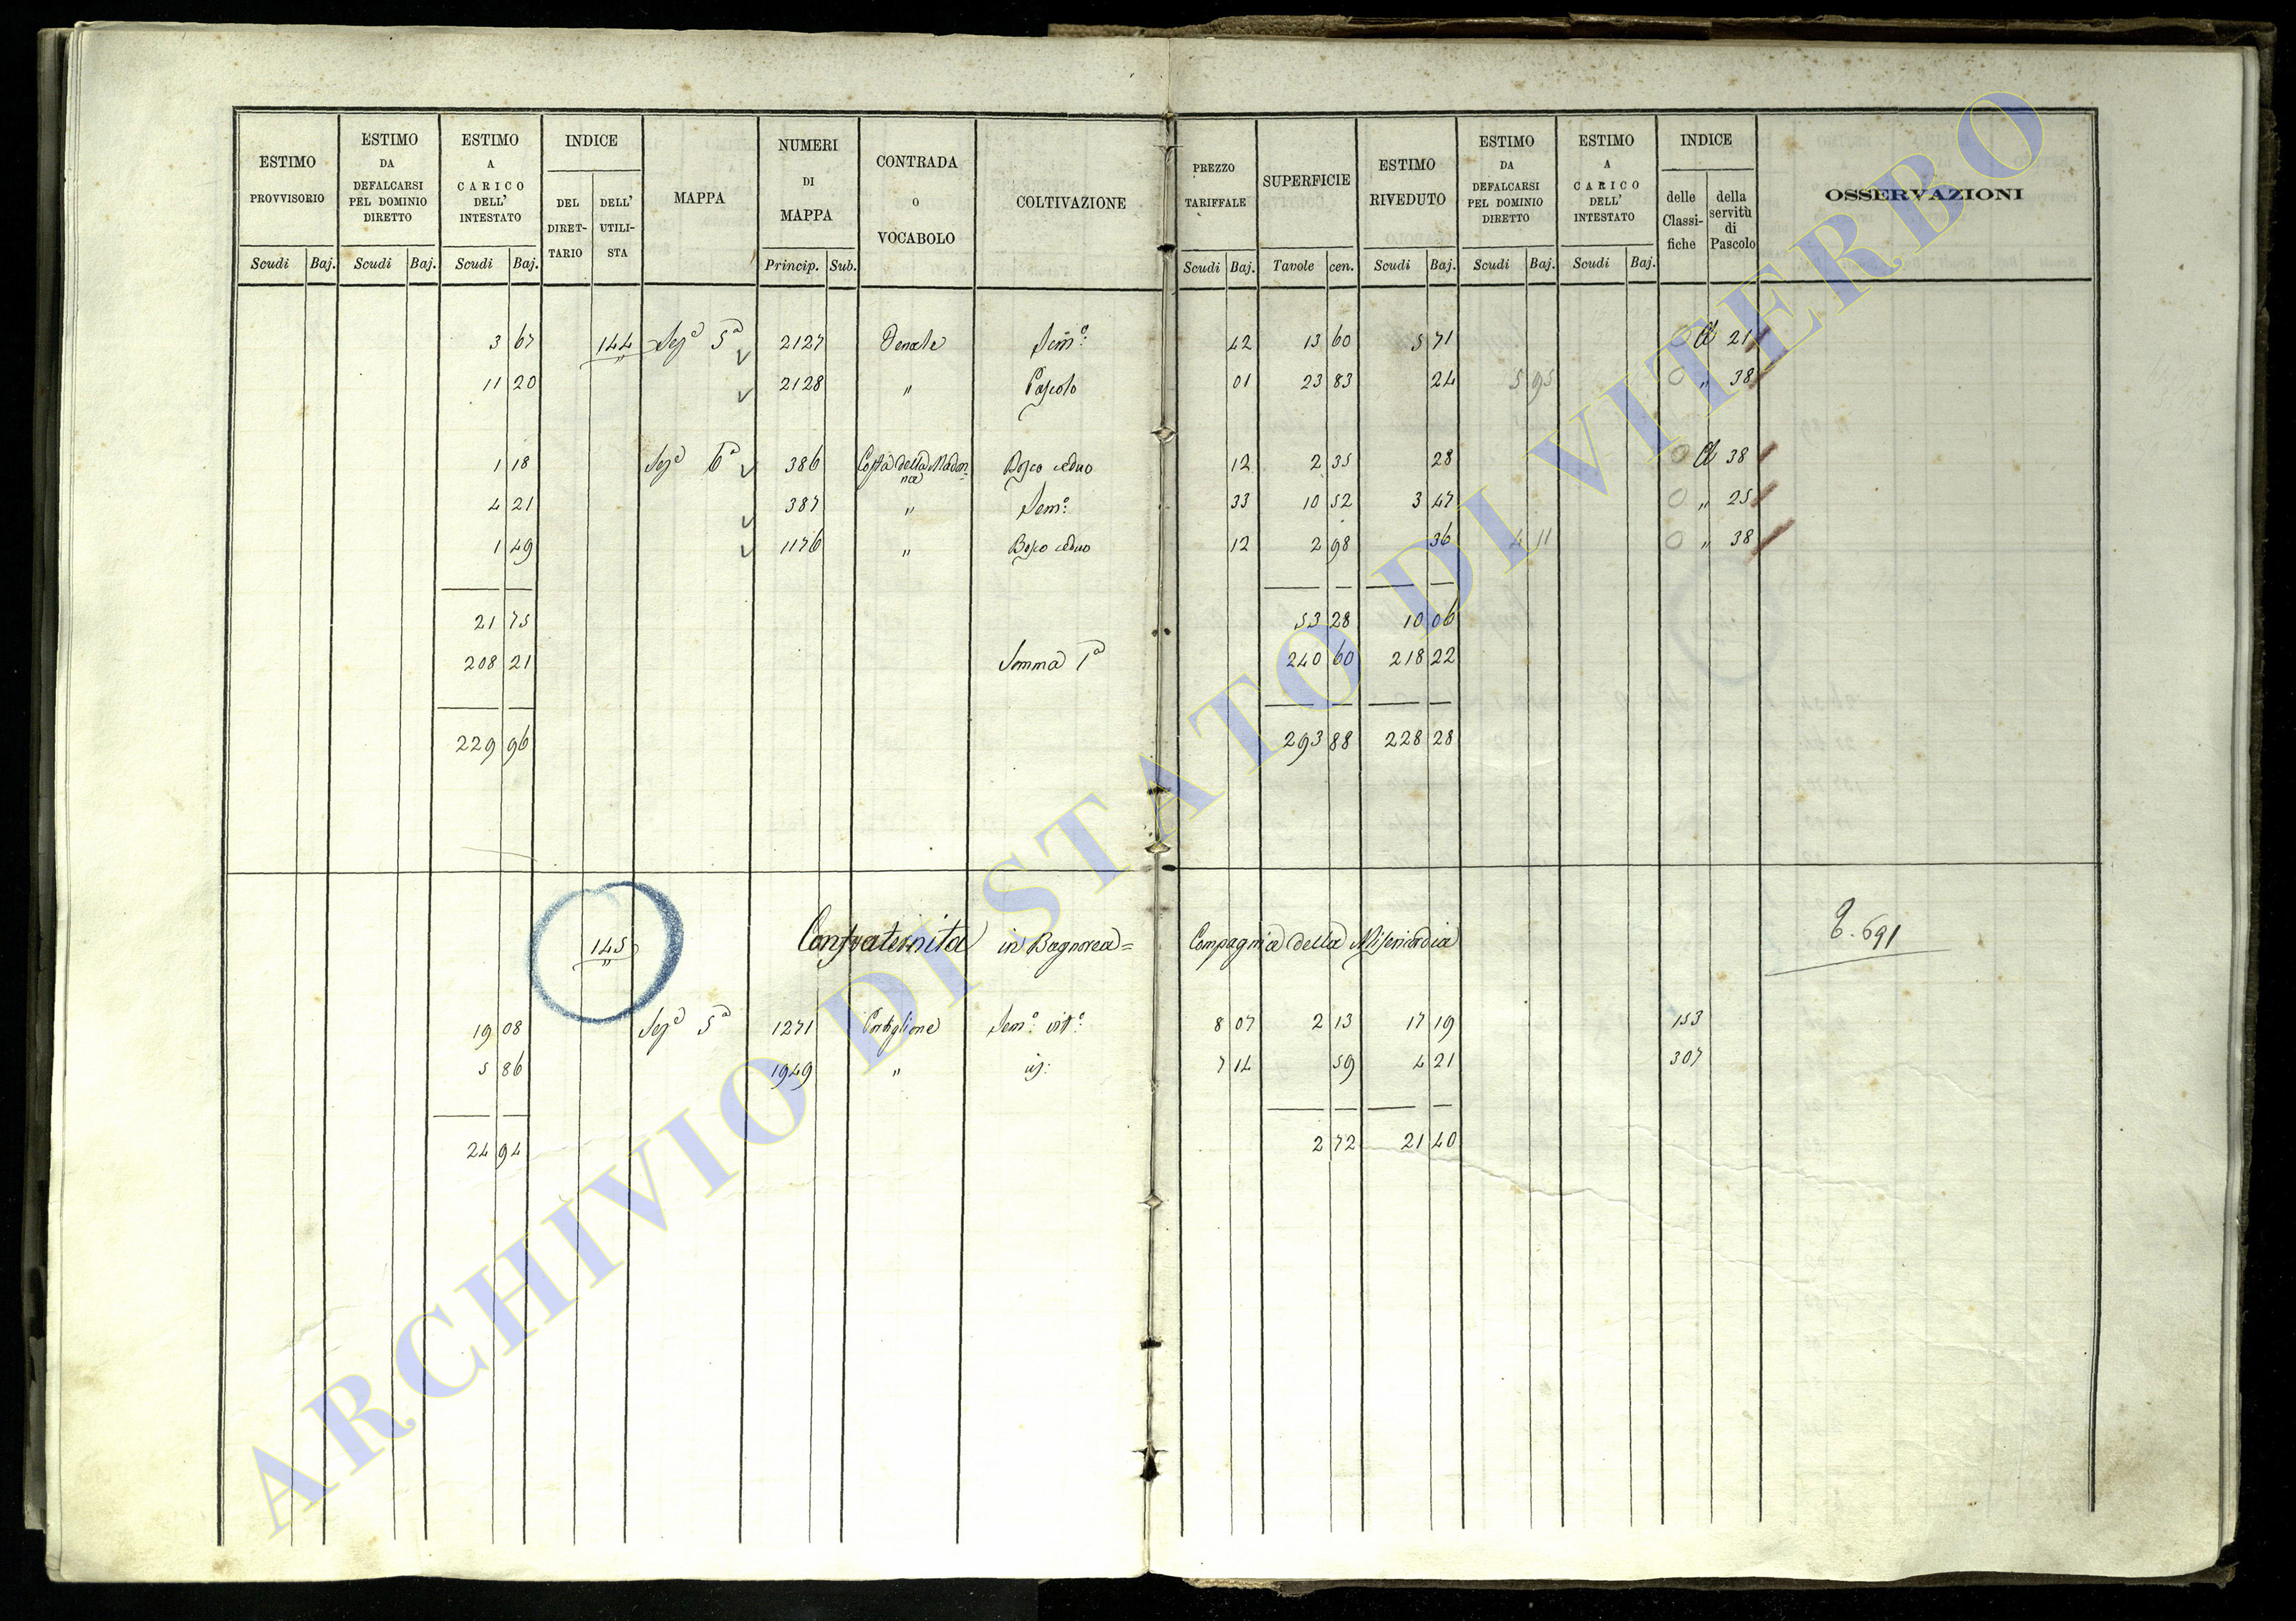 ESTIMO PROVVISORIO | ESTIMO DA DEFALCARSI PEL DOMINIO DIRETTO | ESTIMO A CARICO DELL' INTESTATO | INDICE | MAPPA | NUMERI DI MAPPA | CONTRADA O VOCABOLO | COLTIVAZIONE | PREZZO TARIFFALE | SUPERFICIE | ESTIMO RIVEDUTO | ESTIMO DA DEFALCARSI PEL DOMINIO DIRETTO | ESTIMO A CARICO DELL' INTESTATO | INDICE | OSSERVAZIONI
DEL DIRET-TARIO | DELL' UTILI-STA | delle Classi-fiche | della servitù di Pascolo
Scudi | Baj. | Scudi | Baj. | Scudi | Baj. | Princip. | Sub. | Scudi | Baj. | Tavole | cen. | Scudi | Baj. | Scudi | Baj. | Scudi | Baj.
3 67 144 Sezª 5ª 2127 Sem:º 42 13 60 5 71 Cl 21
11 20 2128 " Pascolo 01 23 83 24 5 95 " 38
1 18 Sezª 6ª 386 Costa della Madon-na Bosco ceduo 12 2 35 28 Cl 38
4 21 387 " Sem:º 33 10 52 3 47 " 25
1 49 1176 " Bosco ceduo 12 2 98 36 4 11 " 38
21 75 53 28 10 06
208 21 Somma 1ª 240 60 218 22
229 96 293 88 228 28
145 Confraternita in Bagnorea= Compagnia della Misericordia 691
19 08 Sezª 5ª 1271 Sem:º vit:º 8 07 2 13 17 19 153
5 86 1949 " 7 14 59 4 21 307
24 94 2 72 21 40
ARCHIVIO DI STATO DI VITERBO